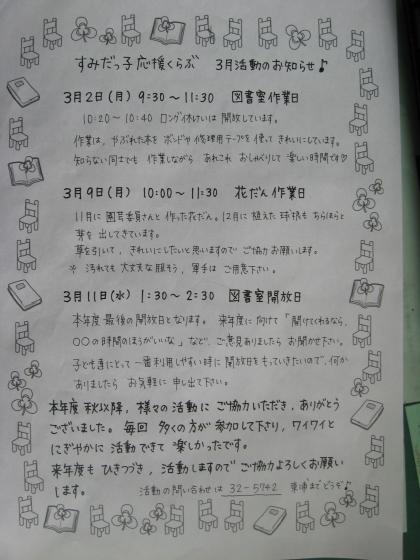 すみだっ子応援くらぶ 3月活動のお知らせ♪
3月2日(月) 9:30〜11:30 図書室作業日
10:20〜10:40 ロング休けいは開放しています。
作業は、やぶれた本をボンドや修理用テープを使ってきれいにしています。
知らない同士でも作業しながら あれこれ おしゃべりして 楽しい時間です♡
3月9日(月) 10:00〜11:30 花だん作業日
11月に園芸委員さんと作った花だん。12月に植えた球根もちらほらと
芽を出してきています。
草を引いて、きれいにしたいと思いますので ご協力お願いします。
※ 汚れても大丈夫な服そう、軍手は ご用意下さい。
3月11日(水) 1:30〜2:30 図書室開放日
本年度最後の開放日となります。来年度に向けて「開けてくれるなら、
〇〇の時間のほうがいいな」など、ご意見ありましたらお聞かせ下さい。
子ども達にとって一番利用しやすい時に開放日をもっていきたいので、何か
ありましたら お気軽に申し出て下さい。
本年度秋以降、様々の活動にご協力いただき、ありがとう
ございました。毎回 多くの方が参加して下さり、ワイワイと
にぎやかに活動できて 楽しかったです。
来年度もひきつづき、活動しますので ご協力よろしくお願い
します。
活動の問い合わせは 32-5742 東浦までどうぞ♪